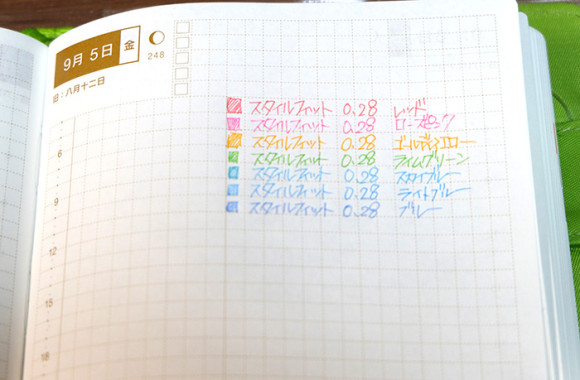 9月 5日 金
248
旧:八月十二日
スタイルフィット 0.28 レッド
スタイルフィット 0.28 ローズピンク
スタイルフィット 0.28 ゴールデンイエロー
スタイルフィット 0.28 ライムグリーン
スタイルフィット 0.28 スカイブルー
スタイルフィット 0.28 ライトブルー
スタイルフィット 0.28 ブルー
6
9
12
15
18